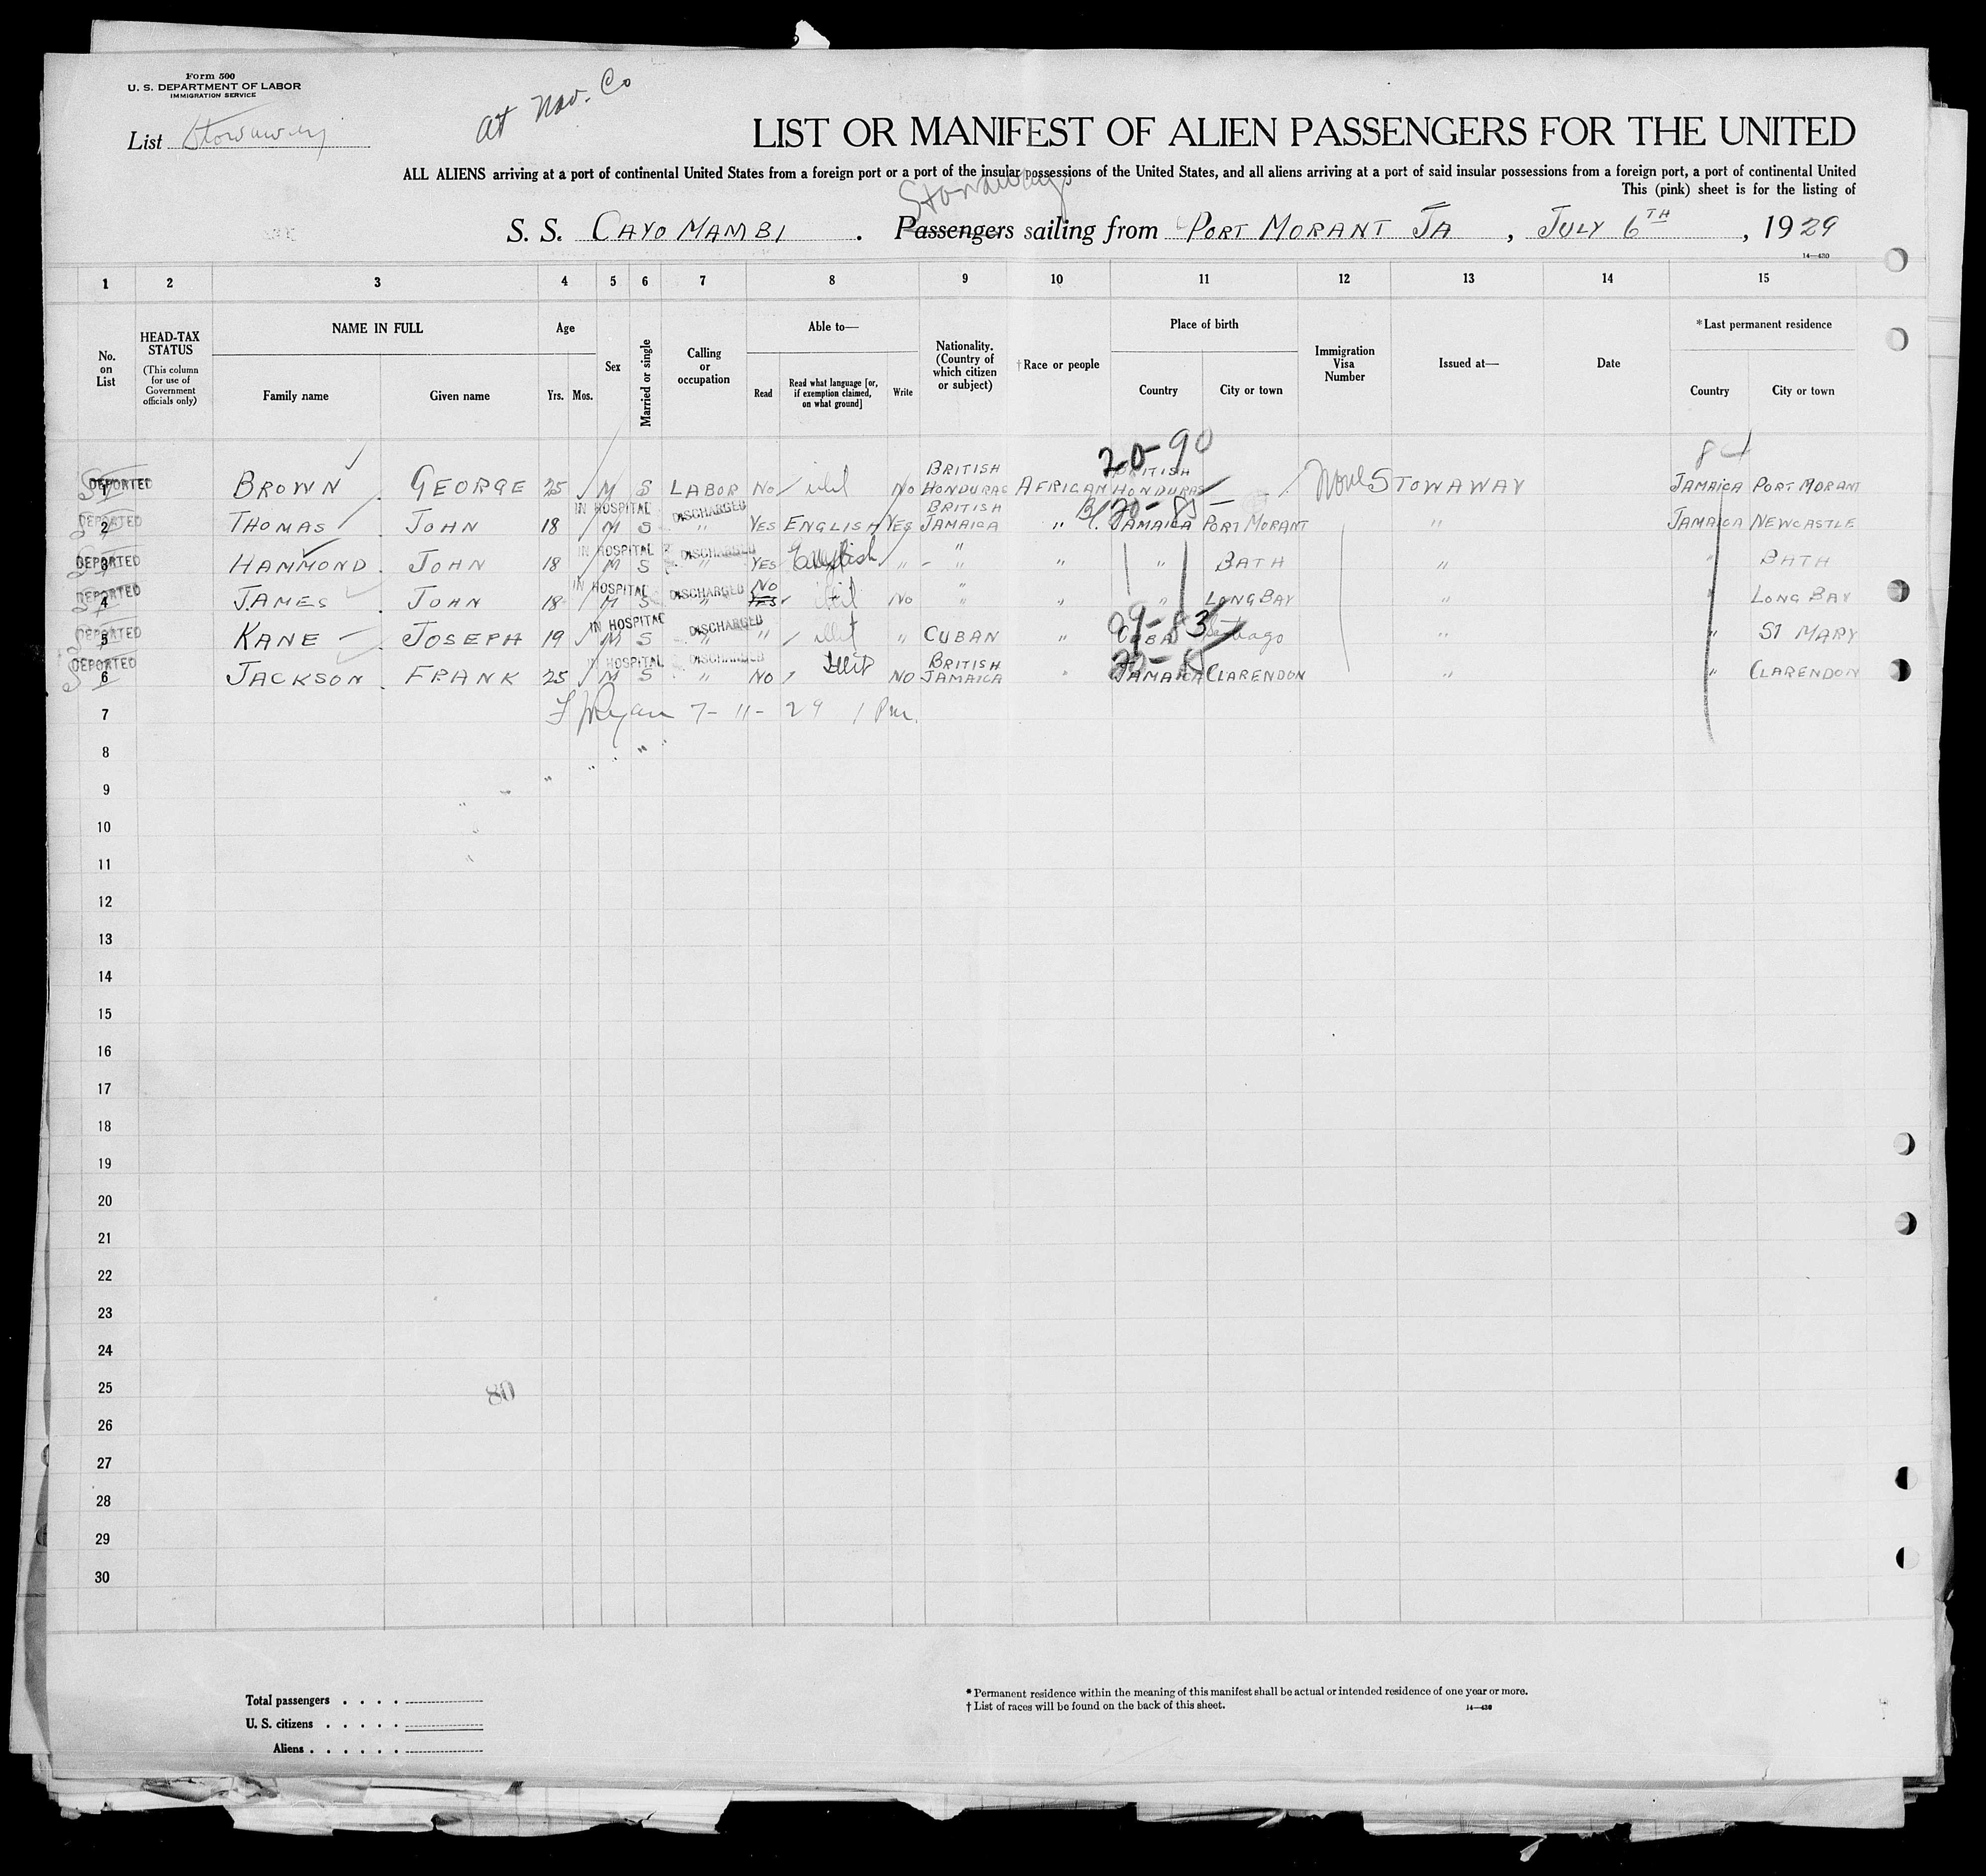 Form 500
U. S. DEPARTMENT OF LABOR
IMMIGRATION SERVICE
at Nav. Co
List Stowaways
LIST OR MANIFEST OF ALIEN PASSENGERS FOR THE UNITED
ALL ALIENS arriving at a port of continental United States from a foreign port or a port of the insular possessions of the United States, and all aliens arriving at a port of said insular possessions from a foreign port, a port of continental United
This (pink) sheet is for the listing of
Stowaways
S. S. CAYO MAMBI . Passengers sailing from PORT MORANT JA , JULY 6TH , 1929
14—430
1 2 3 4 5 6 7 8 9 10 11 12 13 14 15
No. on List
HEAD-TAX STATUS
(This column for use of Government officials only)
NAME IN FULL
Family name Given name
Age
Yrs. Mos.
Sex
Married or single
Calling or occupation
Able to—
Read Read what language [or, if exemption claimed, on what ground] Write
Nationality. (Country of which citizen or subject)
†Race or people
Place of birth
Country City or town
Immigration Visa Number
Issued at—
Date
*Last permanent residence
Country City or town
20-90
DEPORTED 1 BROWN GEORGE 25 M S LABOR NO illit NO BRITISH HONDURAS AFRICAN BRITISH HONDURAS None STOWAWAY JAMAICA PORT MORANT
DEPORTED 2 THOMAS JOHN 18 IN HOSPITAL M S DISCHARGED " YES ENGLISH YES BRITISH JAMAICA " 20-85 JAMAICA PORT MORANT " JAMAICA NEWCASTLE
DEPORTED 3 HAMMOND JOHN 18 IN HOSPITAL M S DISCHARGED " YES English " " " " BATH " " BATH
DEPORTED 4 JAMES JOHN 18 IN HOSPITAL M S DISCHARGED " NO YES illit NO " " " LONG BAY " " LONG BAY
DEPORTED 5 KANE JOSEPH 19 IN HOSPITAL M S DISCHARGED " " illit " CUBAN " 09-83 CUBA Santiago " " ST MARY
DEPORTED 6 JACKSON FRANK 25 IN HOSPITAL M S DISCHARGED " NO illit NO BRITISH JAMAICA " 20-85 JAMAICA CLARENDON " " CLARENDON
7 Ryan 7-11-29 1 Pm.
8
9
10
11
12
13
14
15
16
17
18
19
20
21
22
23
24
25
80
26
27
28
29
30
Total passengers . . . .
U. S. citizens . . . . .
Aliens . . . . . .
* Permanent residence within the meaning of this manifest shall be actual or intended residence of one year or more.
† List of races will be found on the back of this sheet.
14—430